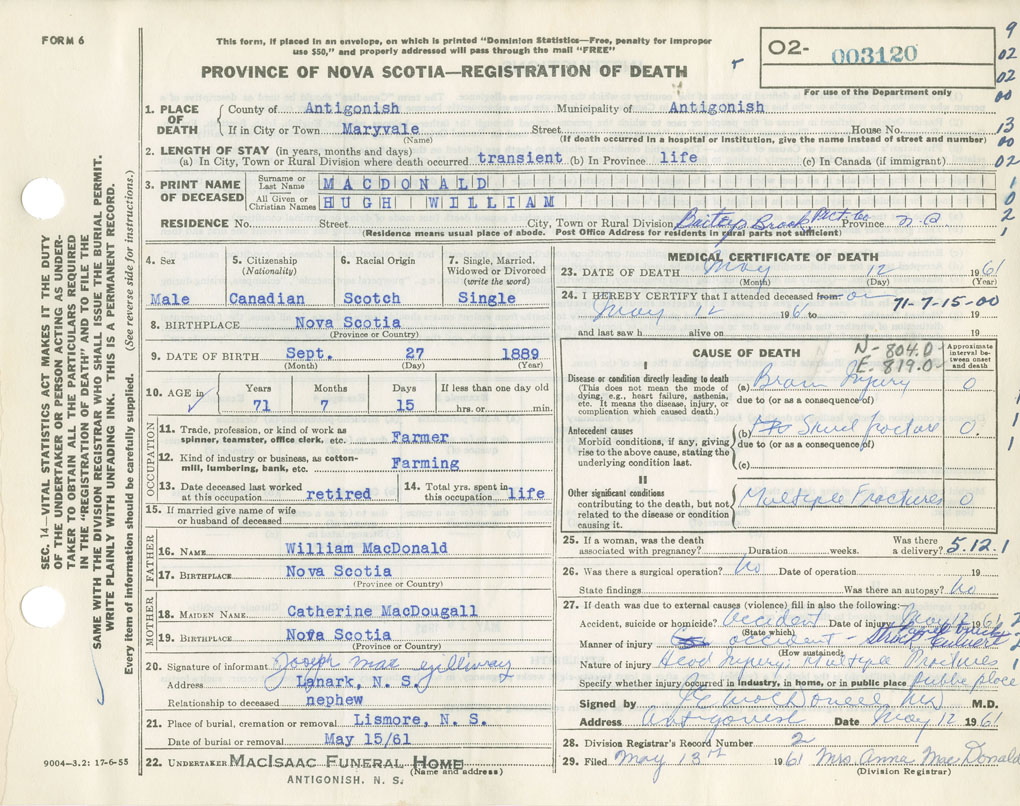 FORM 6
This form, if placed in an envelope, on which is printed "Dominion Statistics—Free, penalty for improper
use $50," and properly addressed will pass through the mail "FREE"
PROVINCE OF NOVA SCOTIA—REGISTRATION OF DEATH
02- 003120
For use of the Department only
9
02
02
00
13
00
02
1
0
2
1
SEC. 14—VITAL STATISTICS ACT MAKES IT THE DUTY
OF THE UNDERTAKER OR PERSON ACTING AS UNDER-
TAKER TO OBTAIN ALL THE PARTICULARS REQUIRED
IN THE "REGISTRATION OF DEATH" AND TO FILE THE
SAME WITH THE DIVISION REGISTRAR WHO SHALL ISSUE THE BURIAL PERMIT.
WRITE PLAINLY WITH UNFADING INK. THIS IS A PERMANENT RECORD.
Every item of information should be carefully supplied. (See reverse side for instructions.)
1. PLACE OF DEATH County of Antigonish Municipality of Antigonish
If in City or Town Maryvale Street House No.
(Name) (If death occurred in a hospital or institution, give the name instead of street and number)
2. LENGTH OF STAY (in years, months and days)
(a) In City, Town or Rural Division where death occurred transient (b) In Province life (c) In Canada (if immigrant)
3. PRINT NAME OF DECEASED Surname or Last Name MACDONALD
All Given or Christian Names HUGH WILLIAM
RESIDENCE No. Street City, Town or Rural Division Baileys Brook Pict. Co. Province N.S.
(Residence means usual place of abode. Post Office Address for residents in rural parts not sufficient)
4. Sex 5. Citizenship (Nationality) 6. Racial Origin 7. Single, Married, Widowed or Divorced (write the word)
Male Canadian Scotch Single
8. BIRTHPLACE Nova Scotia
(Province or Country)
9. DATE OF BIRTH Sept. 27 1889
(Month) (Day) (Year)
10. AGE in Years Months Days If less than one day old
71 7 15 hrs. or min.
OCCUPATION
11. Trade, profession, or kind of work as spinner, teamster, office clerk, etc. Farmer
12. Kind of industry or business, as cotton-mill, lumbering, bank, etc. Farming
13. Date deceased last worked at this occupation retired 14. Total yrs. spent in this occupation life
15. If married give name of wife or husband of deceased
FATHER
16. NAME William MacDonald
17. BIRTHPLACE Nova Scotia
(Province or Country)
MOTHER
18. MAIDEN NAME Catherine MacDougall
19. BIRTHPLACE Nova Scotia
(Province or Country)
20. Signature of informant Joseph Mac Gillivray
Address Lanark, N. S.
Relationship to deceased nephew
21. Place of burial, cremation or removal Lismore, N. S.
Date of burial or removal May 15/61
22. UNDERTAKER MACISAAC FUNERAL HOME
(Name and address)
ANTIGONISH. N. S.
9004—3.2: 17-6-55
MEDICAL CERTIFICATE OF DEATH
23. DATE OF DEATH May 12 1961
(Month) (Day) (Year)
24. I HEREBY CERTIFY that I attended deceased from on 71-7-15-00
May 12 1961 to 19
and last saw h alive on 19
CAUSE OF DEATH N-804.0 E-819.0
Approximate interval between onset and death
I
Disease or condition directly leading to death (a) Brain Injury 0
(This does not mean the mode of dying, e.g., heart failure, asthenia, etc. It means the disease, injury, or complication which caused death.) due to (or as a consequence of)
Antecedent causes (b) Skull fracture 0.
Morbid conditions, if any, giving rise to the above cause, stating the underlying condition last. due to (or as a consequence of)
(c)
II
Other significant conditions contributing to the death, but not related to the disease or condition causing it. Multiple Fractures 0
25. If a woman, was the death associated with pregnancy? Duration weeks. Was there a delivery? 5.12.1
26. Was there a surgical operation? No Date of operation 19
State findings Was there an autopsy? No
27. If death was due to external causes (violence) fill in also the following:
Accident, suicide or homicide? Accident Date of injury May 12 1961
(State which)
Manner of injury accident - struck culvert
(How sustained)
Nature of injury Head Injury; Multiple Fractures
Specify whether injury occurred in industry, in home, or in public place Public place
Signed by MacDonnell MD M.D.
Address Antigonish Date May 12 1961
28. Division Registrar's Record Number 2
29. Filed May 13th 1961 Mrs. Anna MacDonald
(Division Registrar)